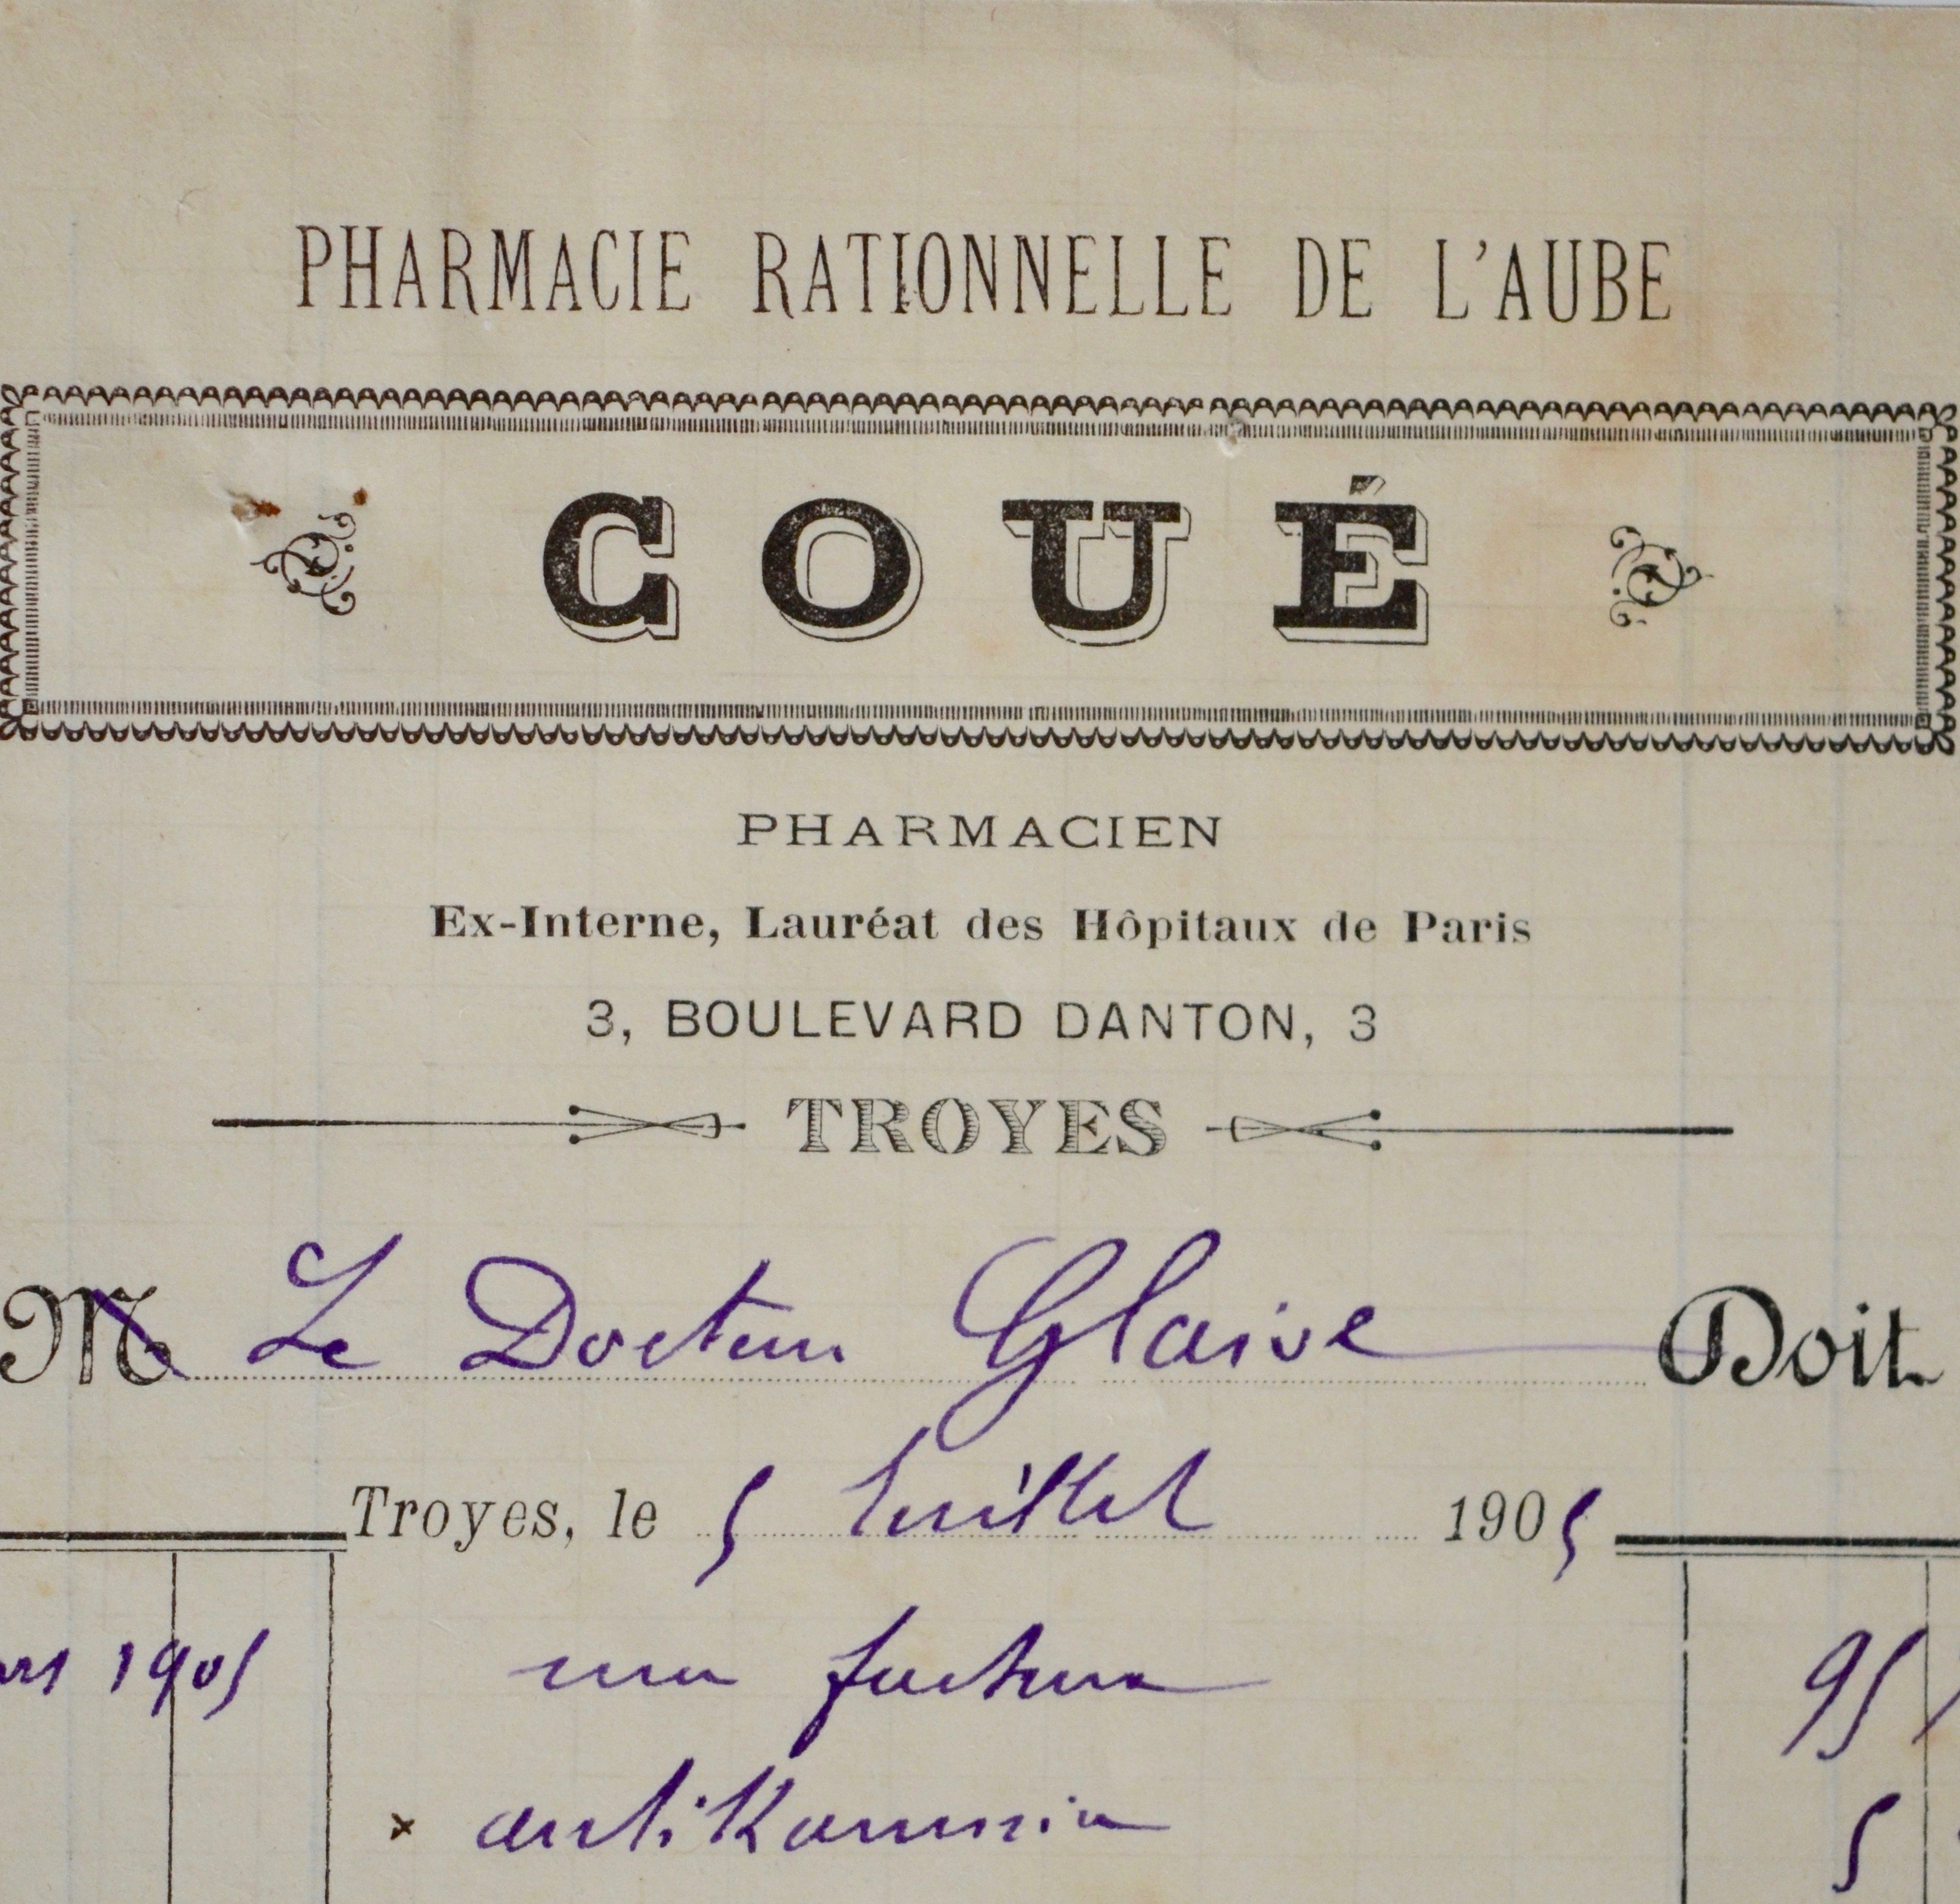 PHARMACIE RATIONNELLE DE L'AUBE
COUÉ
PHARMACIEN
Ex-Interne, Lauréat des Hôpitaux de Paris
3, BOULEVARD DANTON, 3
TROYES
M Le Docteur Glaive Doit
Troyes, le 5 Juillet 1905
1905 ma facture 95
x antiKamnia 5